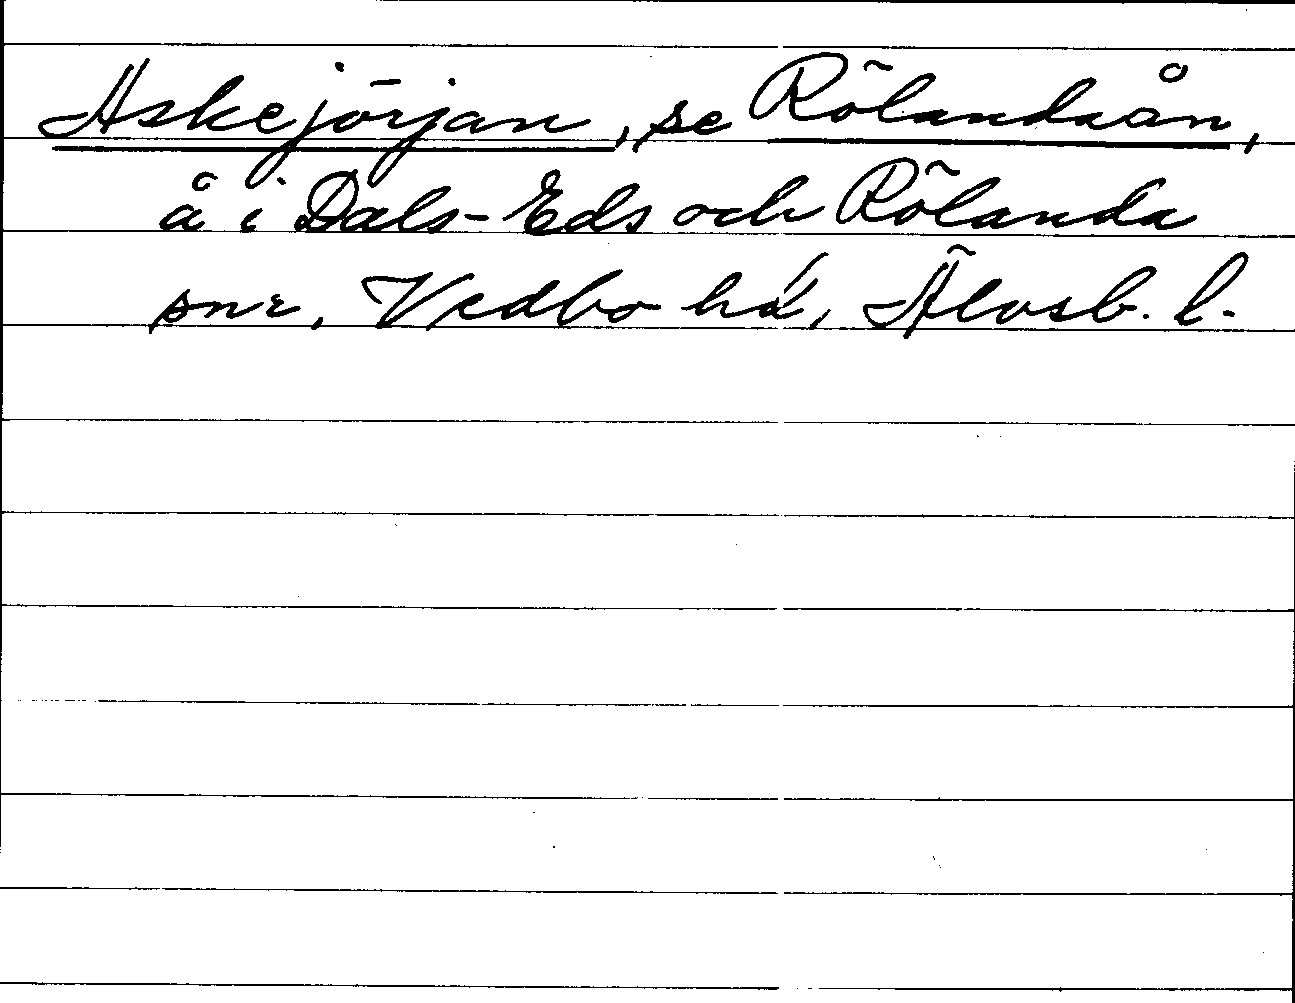 Askejörjan, se Rölandaån,
å i Dals-Eds och Rölanda
snr, Vedbo hd, Älvsb. l.